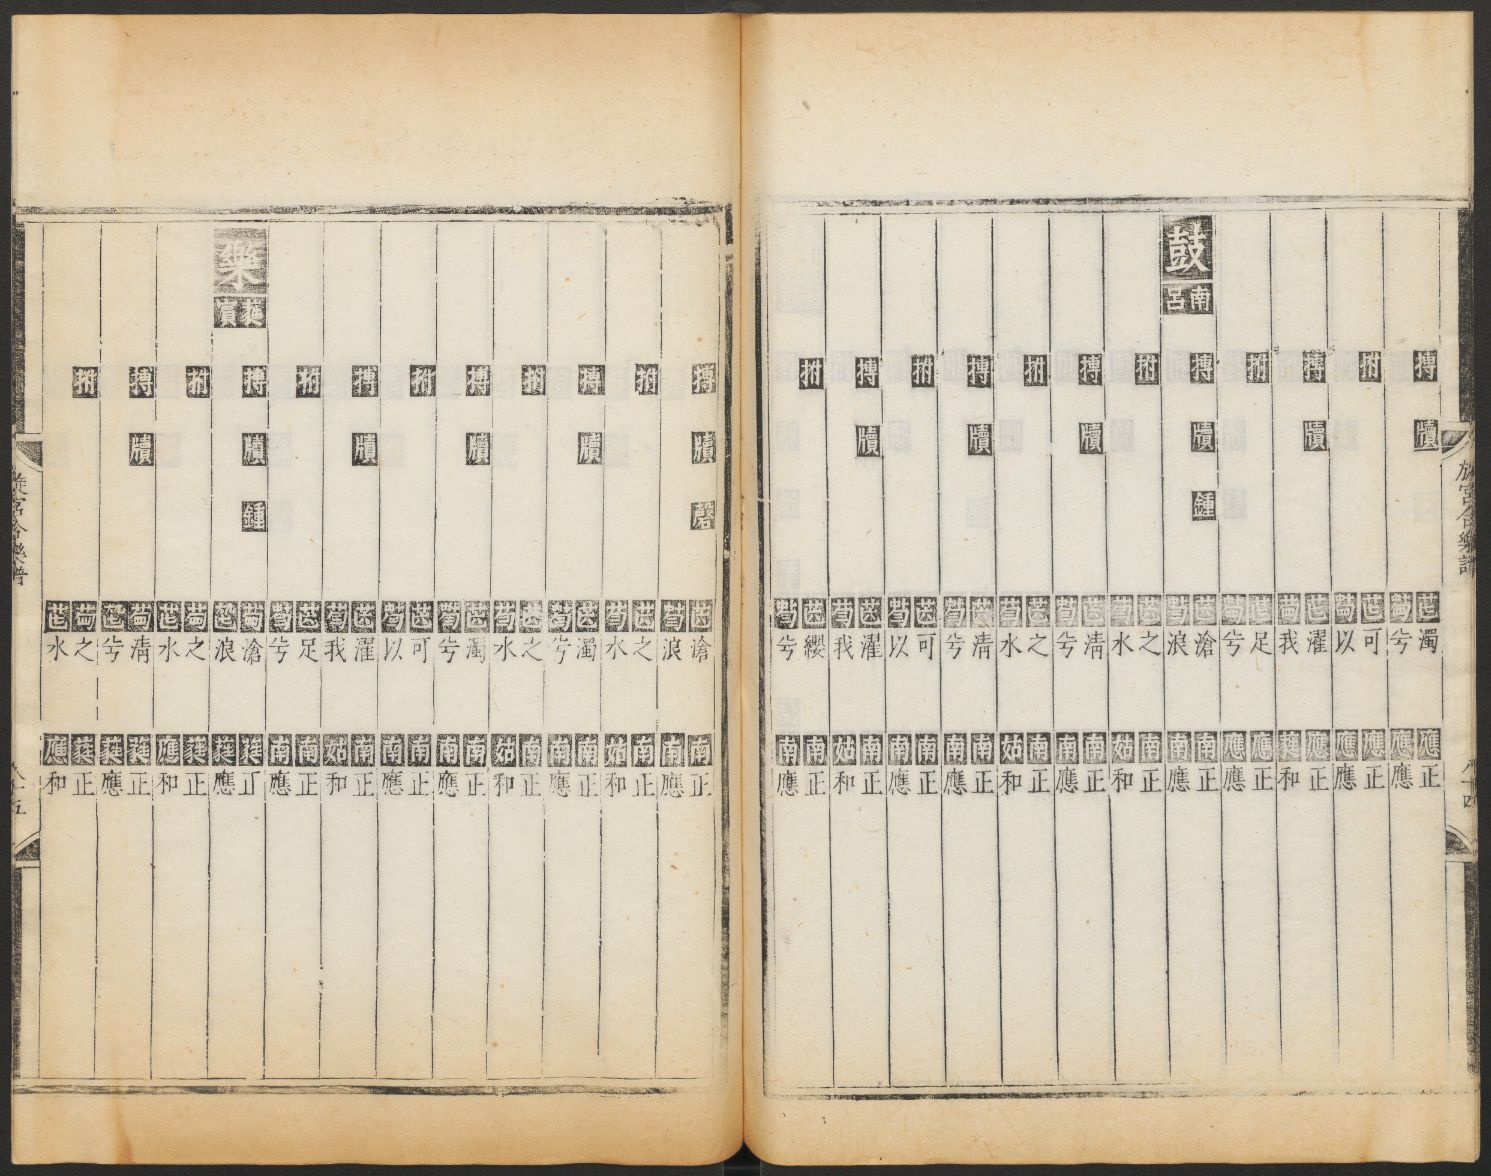 旋宮合樂譜
八十四
鼓
南呂
搏拊搏拊搏拊搏拊搏拊搏拊
牘牘牘牘牘牘
鍾
濁兮可以濯我足兮滄浪之水清兮之水清兮可以濯我纓兮
應應應應應蕤應應南南南姑南南南姑南南南南南姑南南
正應正應正和正應正應正和正應正和正應正應正和正應
樂
蕤賓
搏拊搏拊搏拊搏拊搏拊搏拊
牘牘牘牘牘牘
磬鍾
滄浪之水濁兮之水濁兮可以濯我足兮滄浪之水清兮之水
南南南姑南南南姑南南南南南姑南南蕤蕤蕤應蕤蕤蕤應
正應正和正應正和正應正應正和正應正應正和正應正和
旋宮合樂譜
八十五